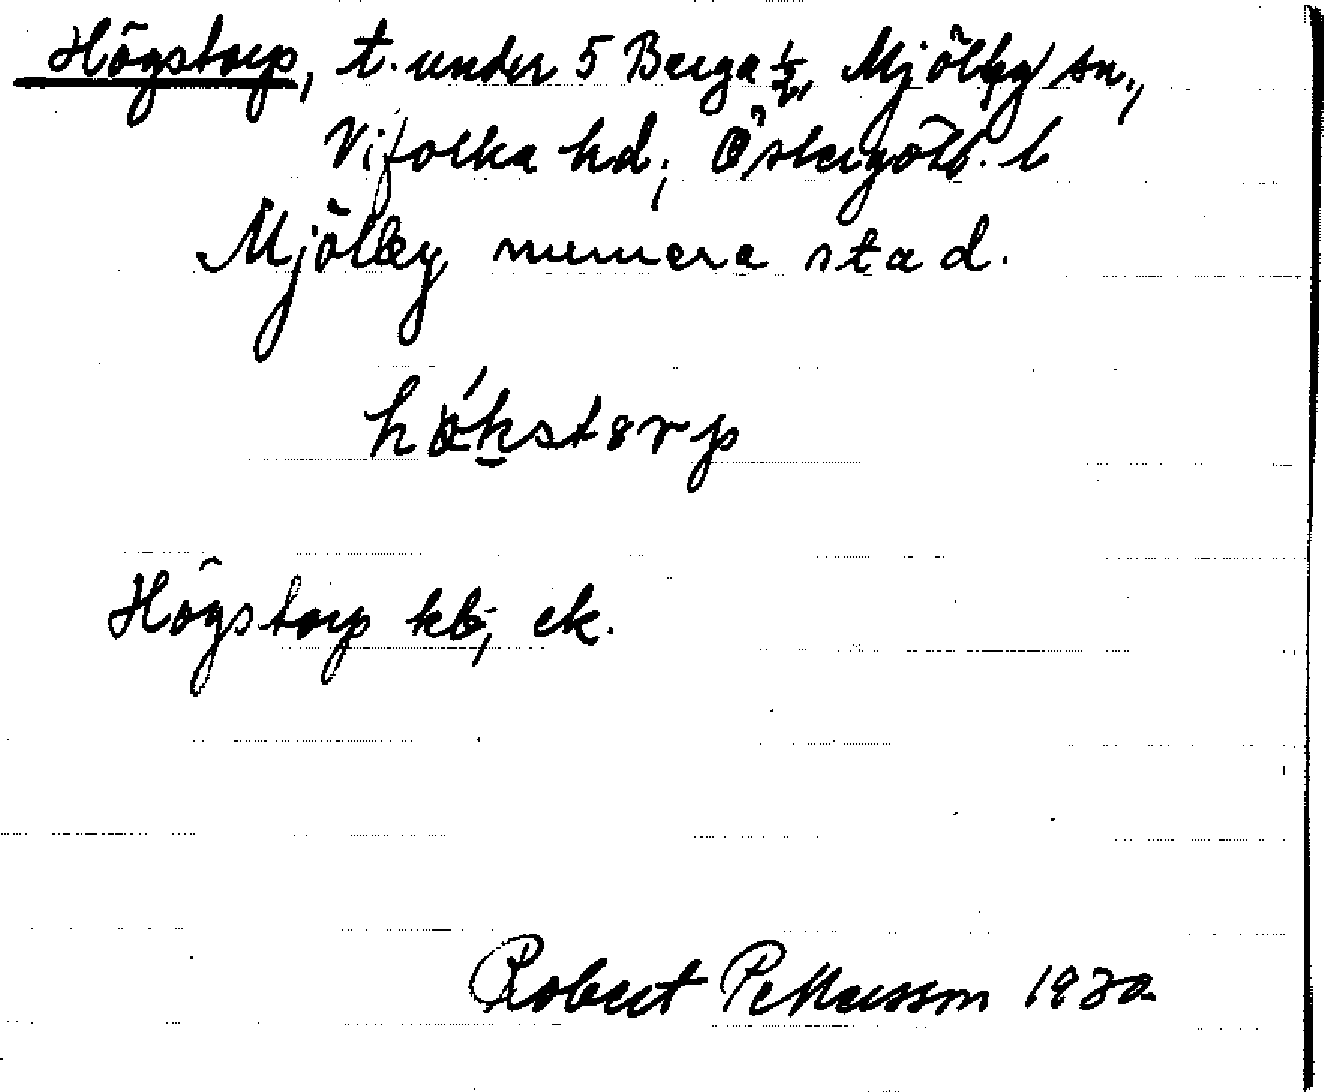 Högstorp, t. under 5 Berga ½, Mjölby sn.,
Vifolka hd; Östergötl. l
Mjölby numera stad.
Högstorp kb; ek.
Robert Pettersson 1930